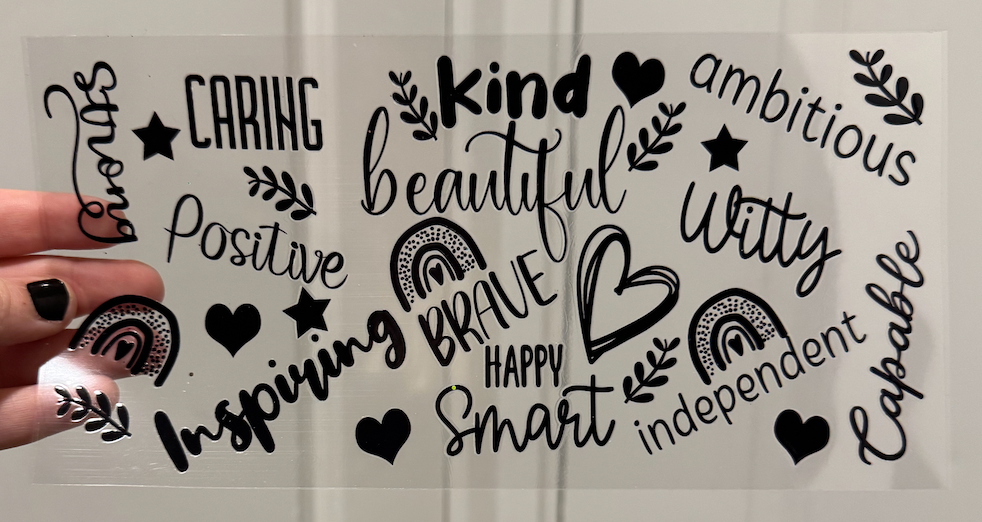 Strong
CARING
kind
ambitious
beautiful
Positive
Witty
BRAVE
Capable
Inspiring
HAPPY
independent
Smart